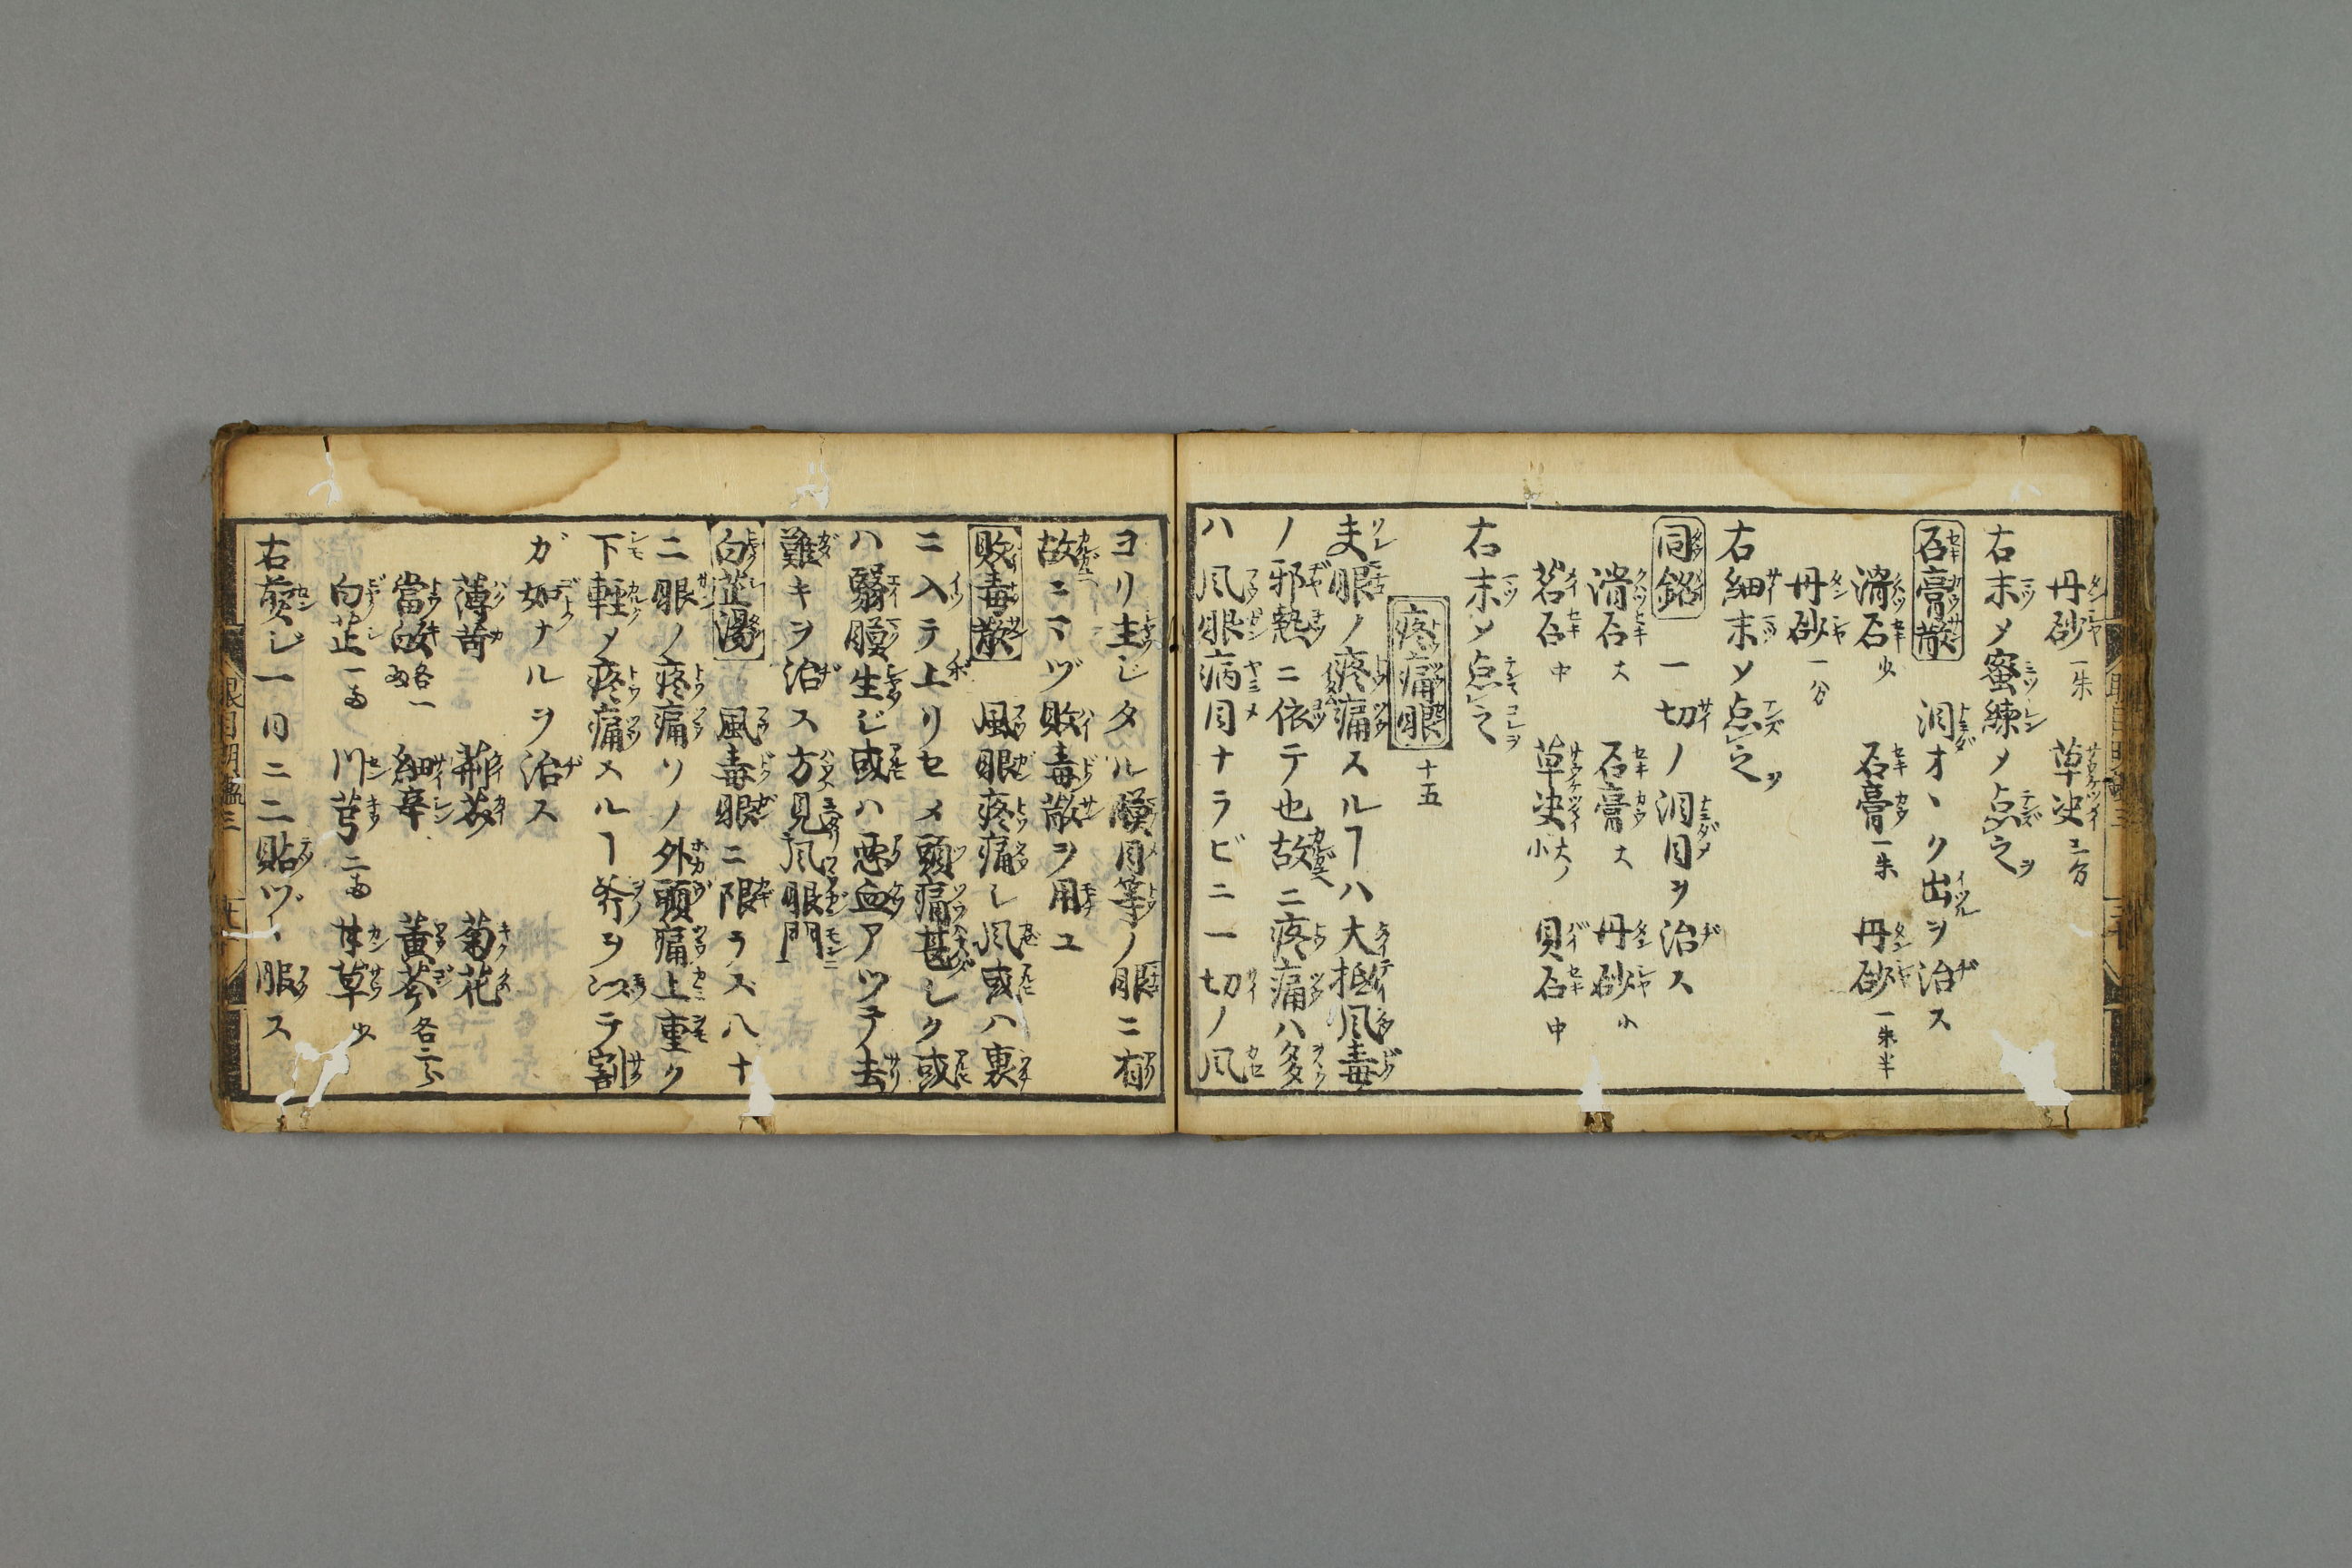 丹砂一朱 草决二分
右末メ蜜練メ点之ヲ
石膏散 泪オヽク出ヲ治ス
滑石少 石膏一朱 丹砂一朱半
丹砂一分
右細末メ点之ヲ
同銘 一切ノ泪目ヲ治ス
滑石大 石膏大 丹砂小
石中 草决大ノ小 貝石中
右末メ点之
疼痛眼 十五
夫眼ノ疼痛スルヿハ大抵風毒
ノ邪熱ニ依テ也故ニ疼痛ハ多
ハ風眼病目ナラビニ一切ノ風
ヨリ生シタル目等ノ眼ニ有
故ニマヅ敗毒散ヲ用ユ
敗毒散 風眼疼痛シ風或ハ裏
ニ入テ上リセメ頭痛甚シク或
ハ翳膜生ジ或ハ悪血アツテ去
難キヲ治ス方見風眼門
白芷湯 風毒眼ニ限ラス八十
ニ眼ノ疼痛ソノ外頭痛上重ク
下軽メ疼痛スルヿ斧ヲ以テ割
ガ如ナルヲ治ス
薄荷 荊芥 菊花
當皈各一 細辛 黄芩各二
白芷一 川芎二 甘草少
右煎ジ一日ニ二貼ヅヽ服ス
眼目明鑑三